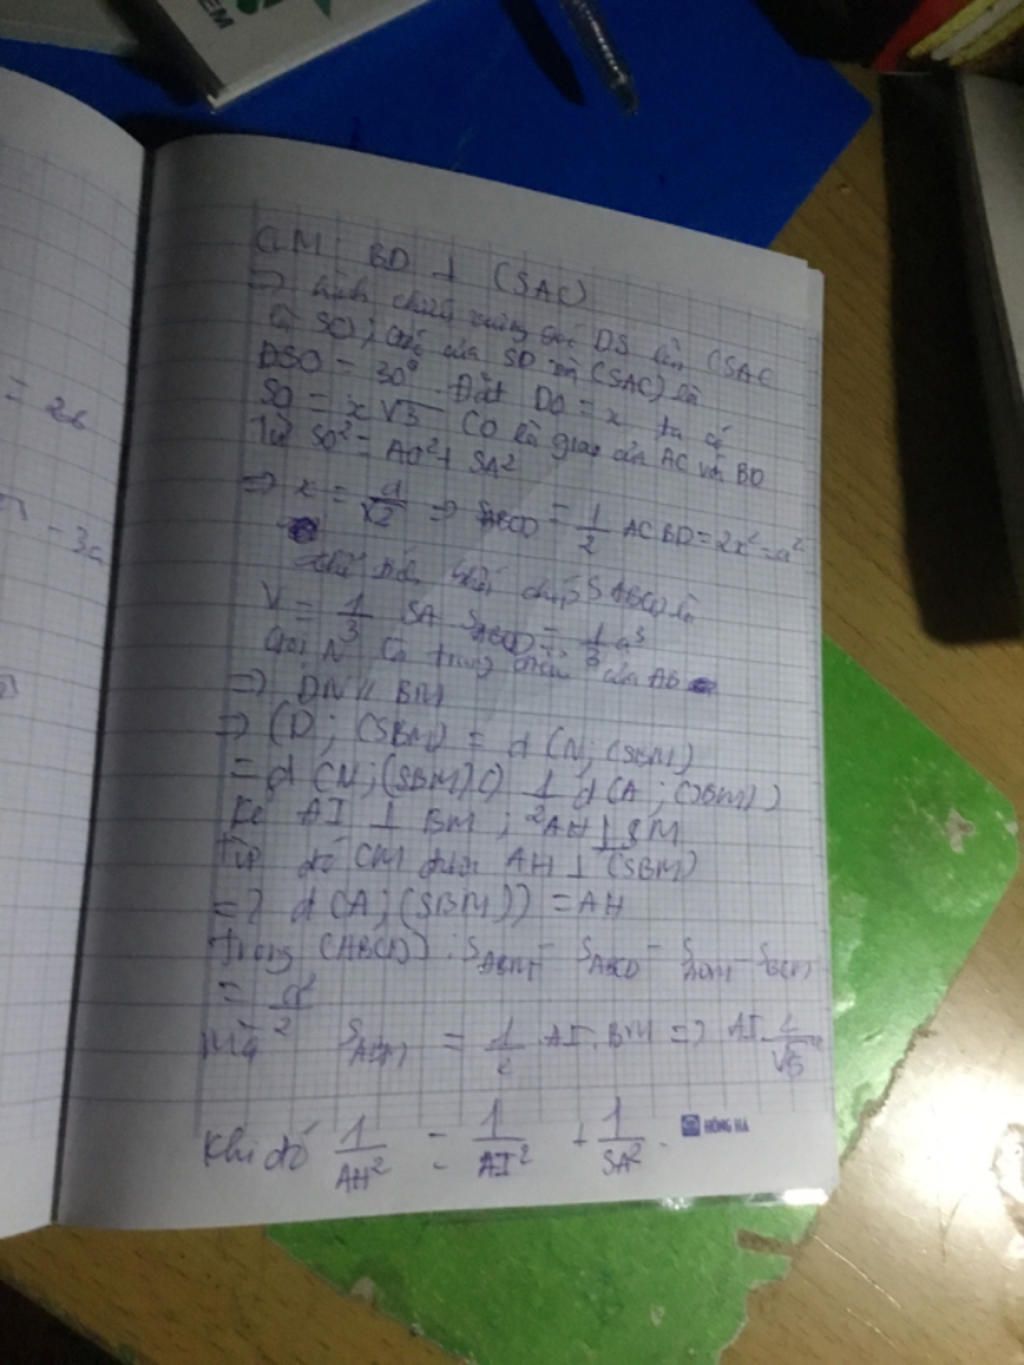 EM
= 2b
- 3a
CM BD ⊥ (SAC)
=> hình chiếu vuông góc DS lên (SAC
là SO; góc của SD và (SAC) là
DSO = 30° Đặt DO = x ta có
SO = x√3 CO là giao của AC với BD
Từ SO² = AO² + SA²
=> x = a/√2 => SABCD = 1/2 AC BD = 2x² = a²
khối chóp SABCD là
V = 1/3 SA SABCD = 1/3 a³
Gọi N là trung điểm của AB
=> DN // BM
=> (D; (SBM) = d (N; (SBM)
= d (N; (SBM)C) 1/2 d(A; (SBM))
Kẻ AI ⊥ BM; AH ⊥ SM
Từ đó CM được AH ⊥ (SBM)
=> d (A; (SBM)) = AH
trong (ABCD): SABM = SABCD - SADM - SBCM
= a²/2
Mà SABM = 1/2 AI. BM => AI 2/√5 a
Khi đó 1/AH² = 1/AI² + 1/SA².
HỒNG HÀ